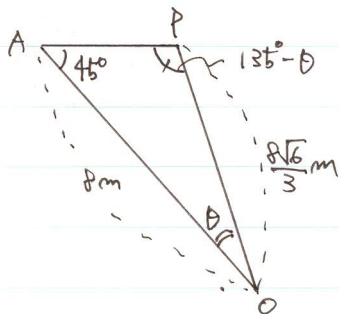 P
A
45°
135°-θ
8m
8√6/3 m
θ
O